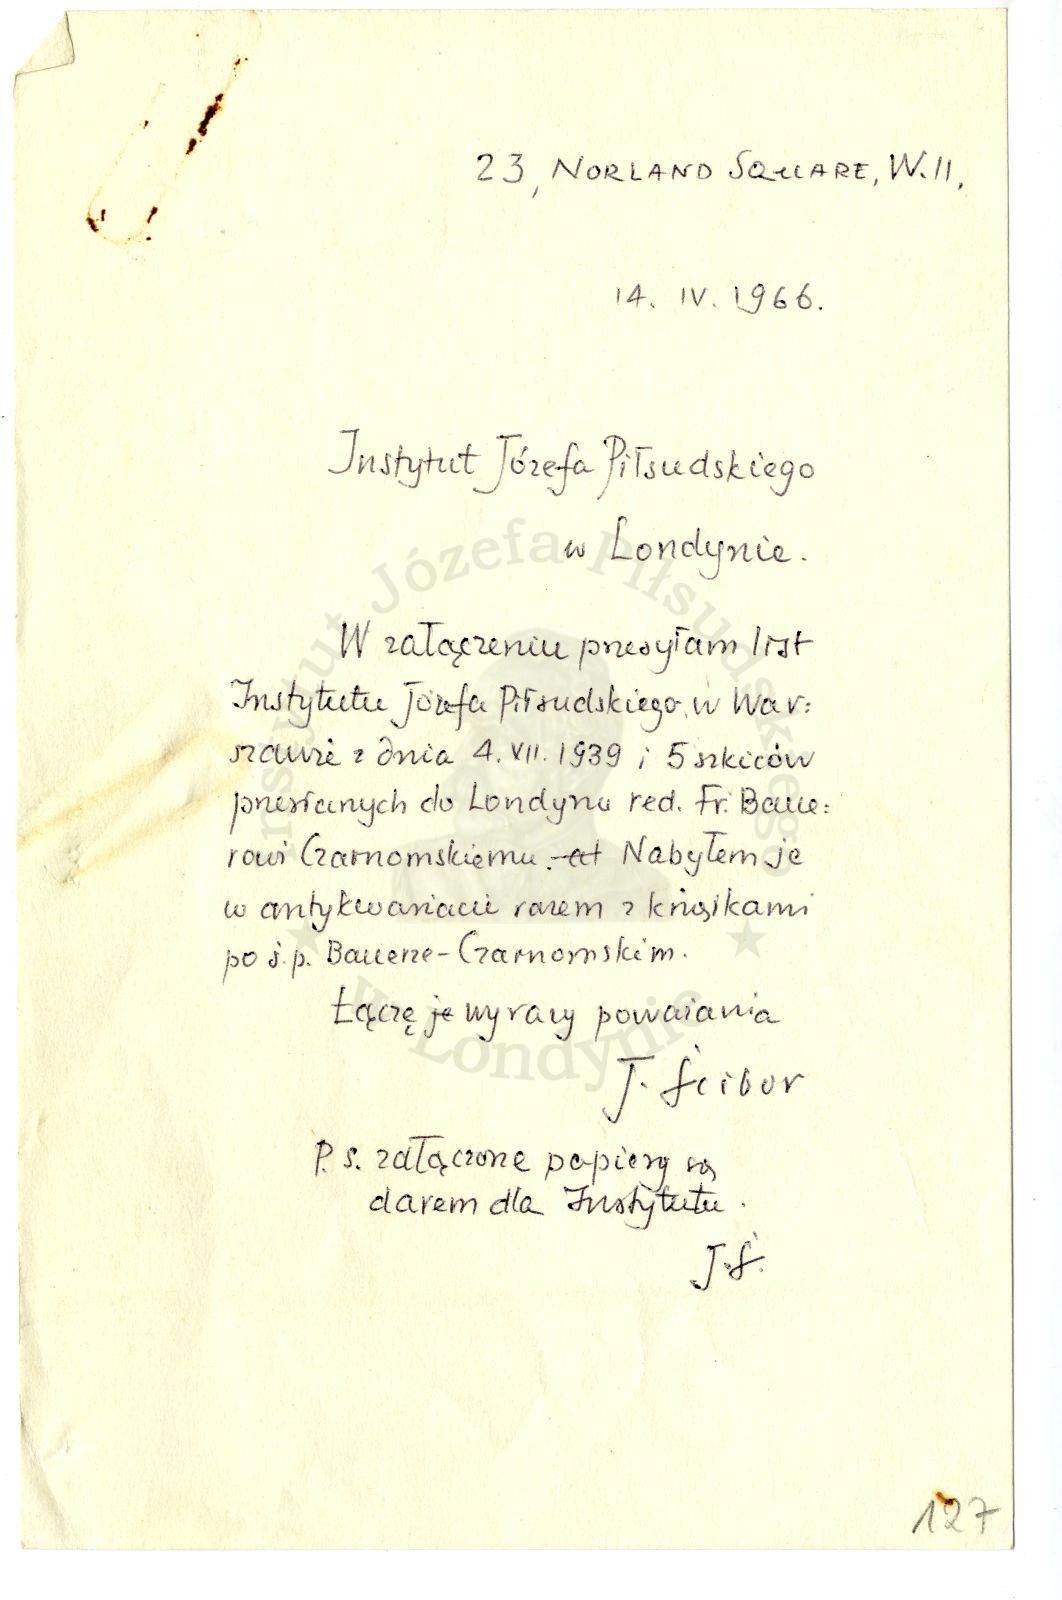 23, NORLAND SQUARE, W.11,
14. IV. 1966.
Instytut Józefa Piłsudskiego
w Londynie.
W załączeniu przesyłam list
Instytutu Józefa Piłsudskiego w War=
szawie z dnia 4. VII. 1939 i 5 szkiców
przesłanych do Londynu red. Fr. Baue=
rowi Czarnomskiemu. Nabyłem je
w antykwariacie razem z książkami
po ś.p. Bauerze-Czarnomskim.
Łączę je wyrazy poważania
J. Ścibor
P.s. załączone papiery są
darem dla Instytutu.
J.Ś.
127
Instytut Józefa Piłsudskiego
w Londynie